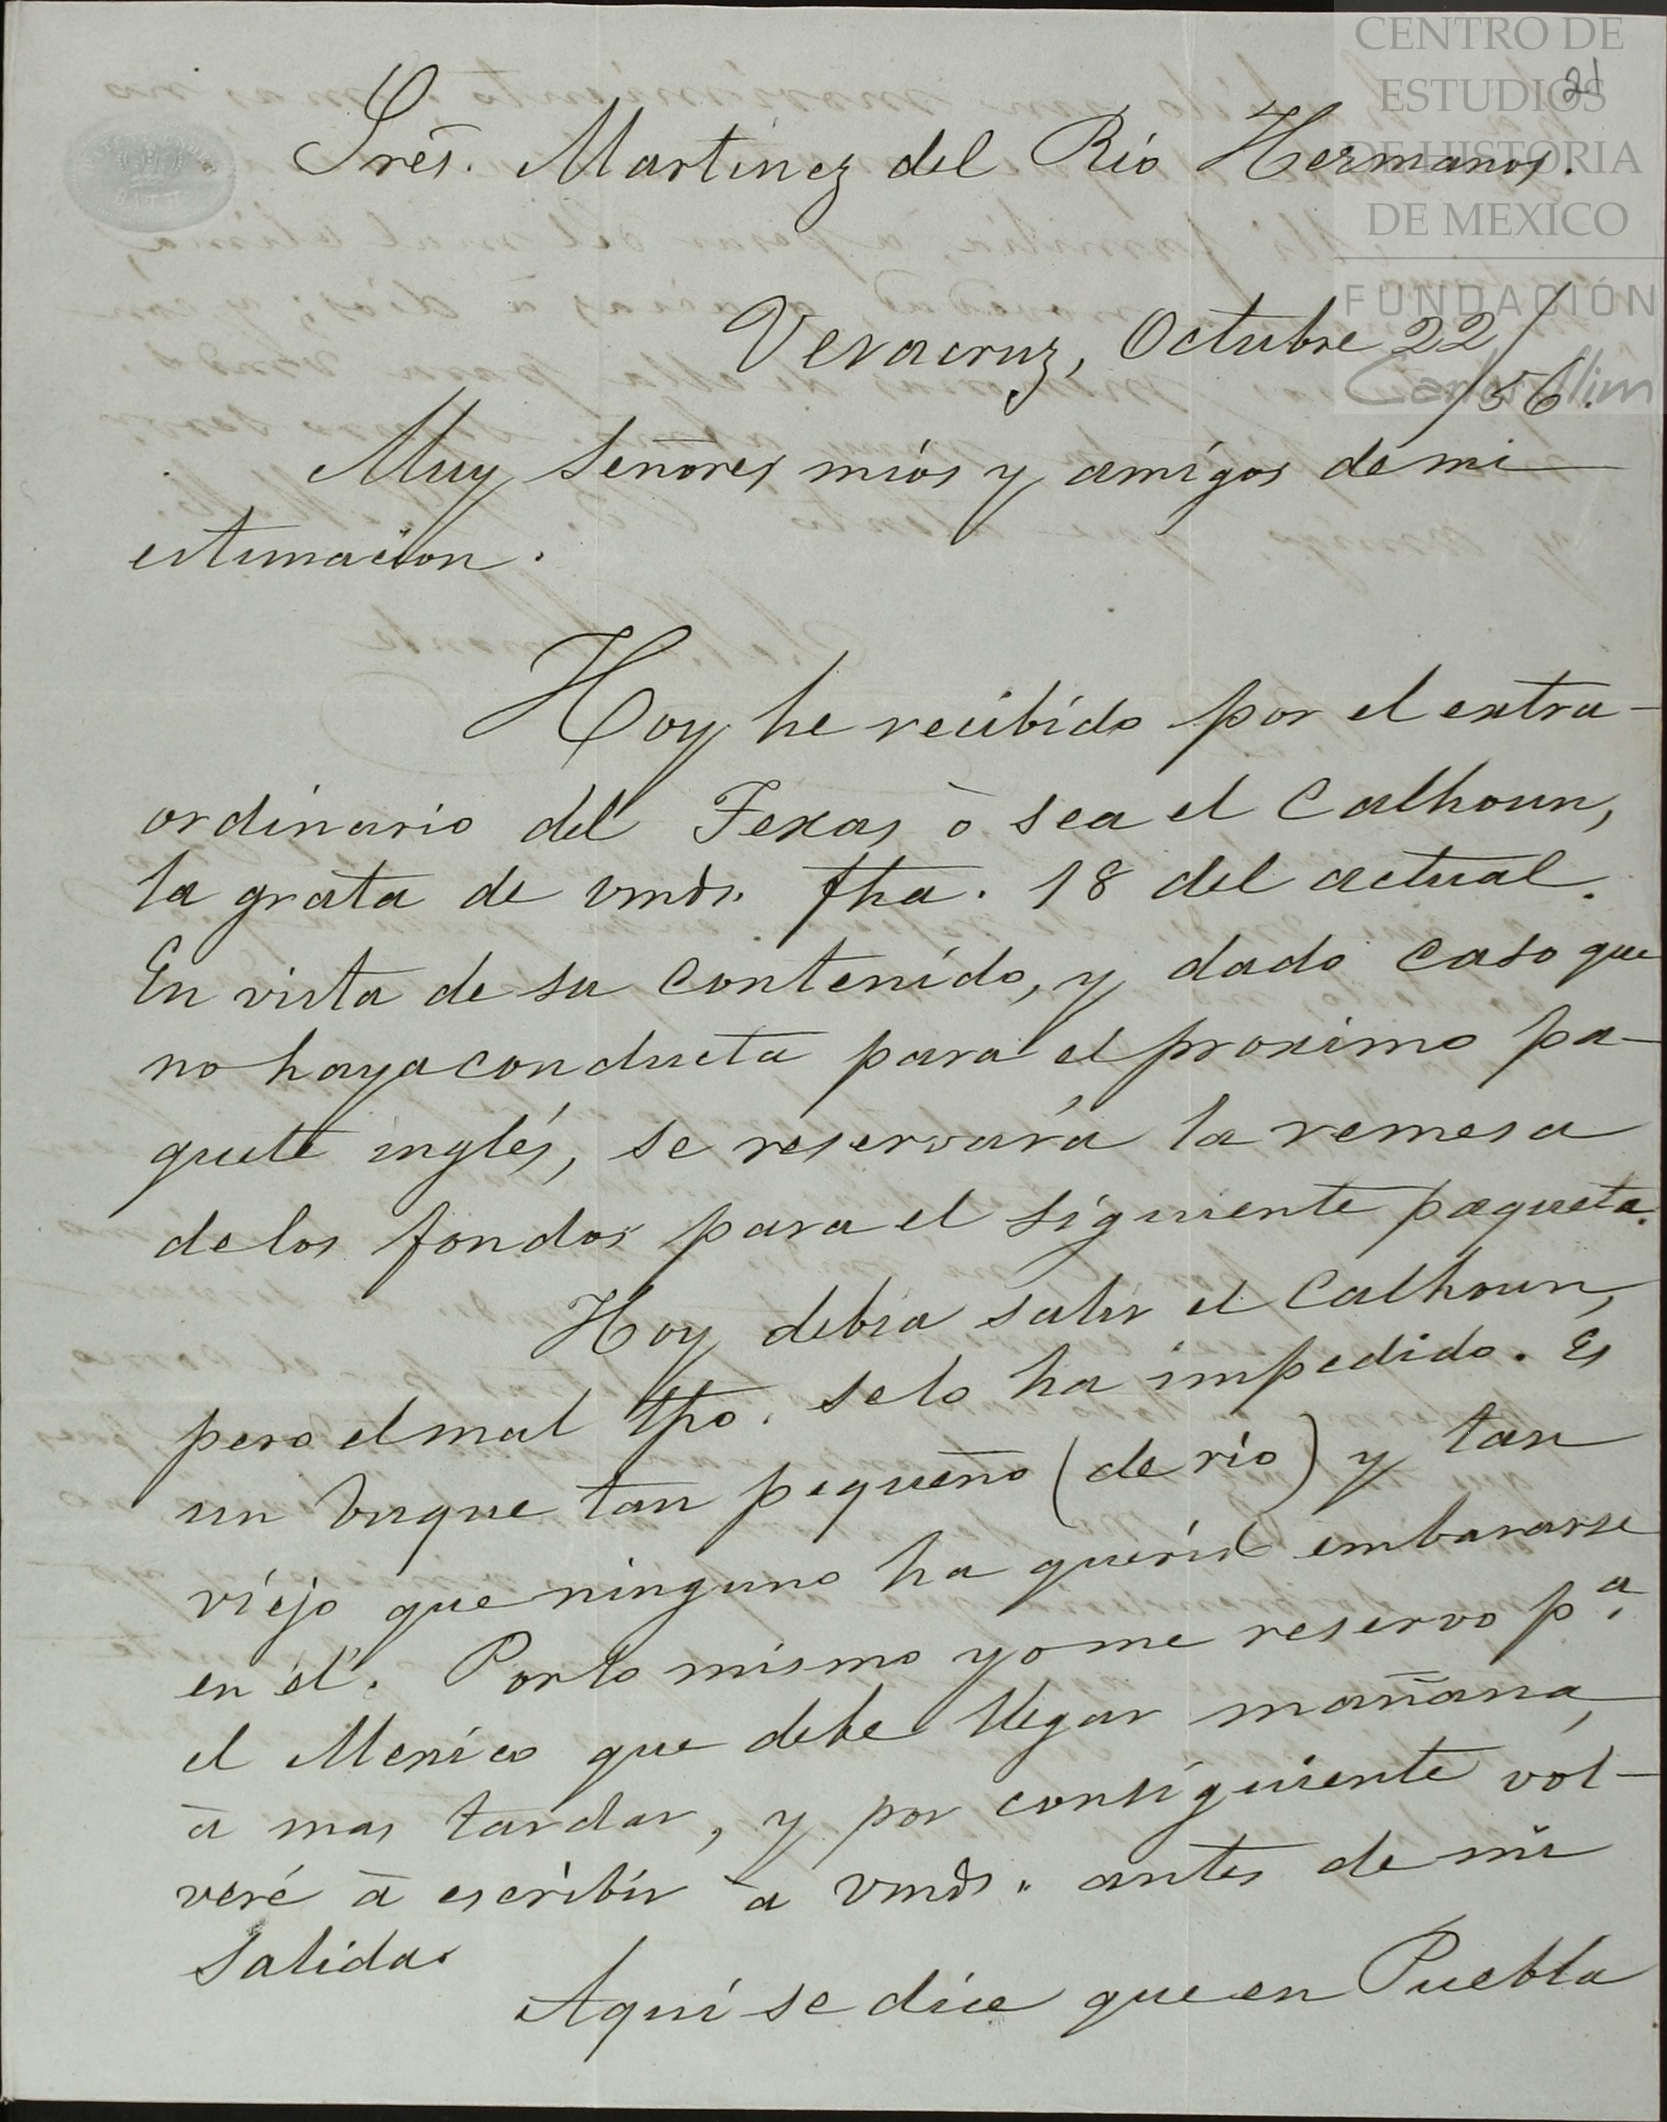 CENTRO DE
ESTUDIOS
DE HISTORIA
DE MEXICO
FUNDACIÓN
Carlos Slim
21
Sres. Martinez del Rio Hermanos.
Veracruz, Octubre 22/
/56.
Muy Señores mios y amigos de mi
estimacion.
Hoy he recibido por el extra-
ordinario del Texas ò sea el Calhoun,
la grata de vmds. fha. 18 del actual.
En vista de su contenido, y dado caso que
no haya conducta para el proximo pa-
quete inglés, se reservará la remesa
de los fondos para el siguiente paquete.
Hoy debia salir el Calhoun,
pero el mal tpo. se lo ha impedido. Es
un buque tan pequeño (de rio) y tan
viejo que ninguno ha querido embararse
en él. Por lo mismo yo me reservo pa.
el Mexico que debe llegar mañana,
à mas tardar, y por consiguiente vol-
veré à escribir à vmds. antes de mi
salida.
Aqui se dice que en Puebla